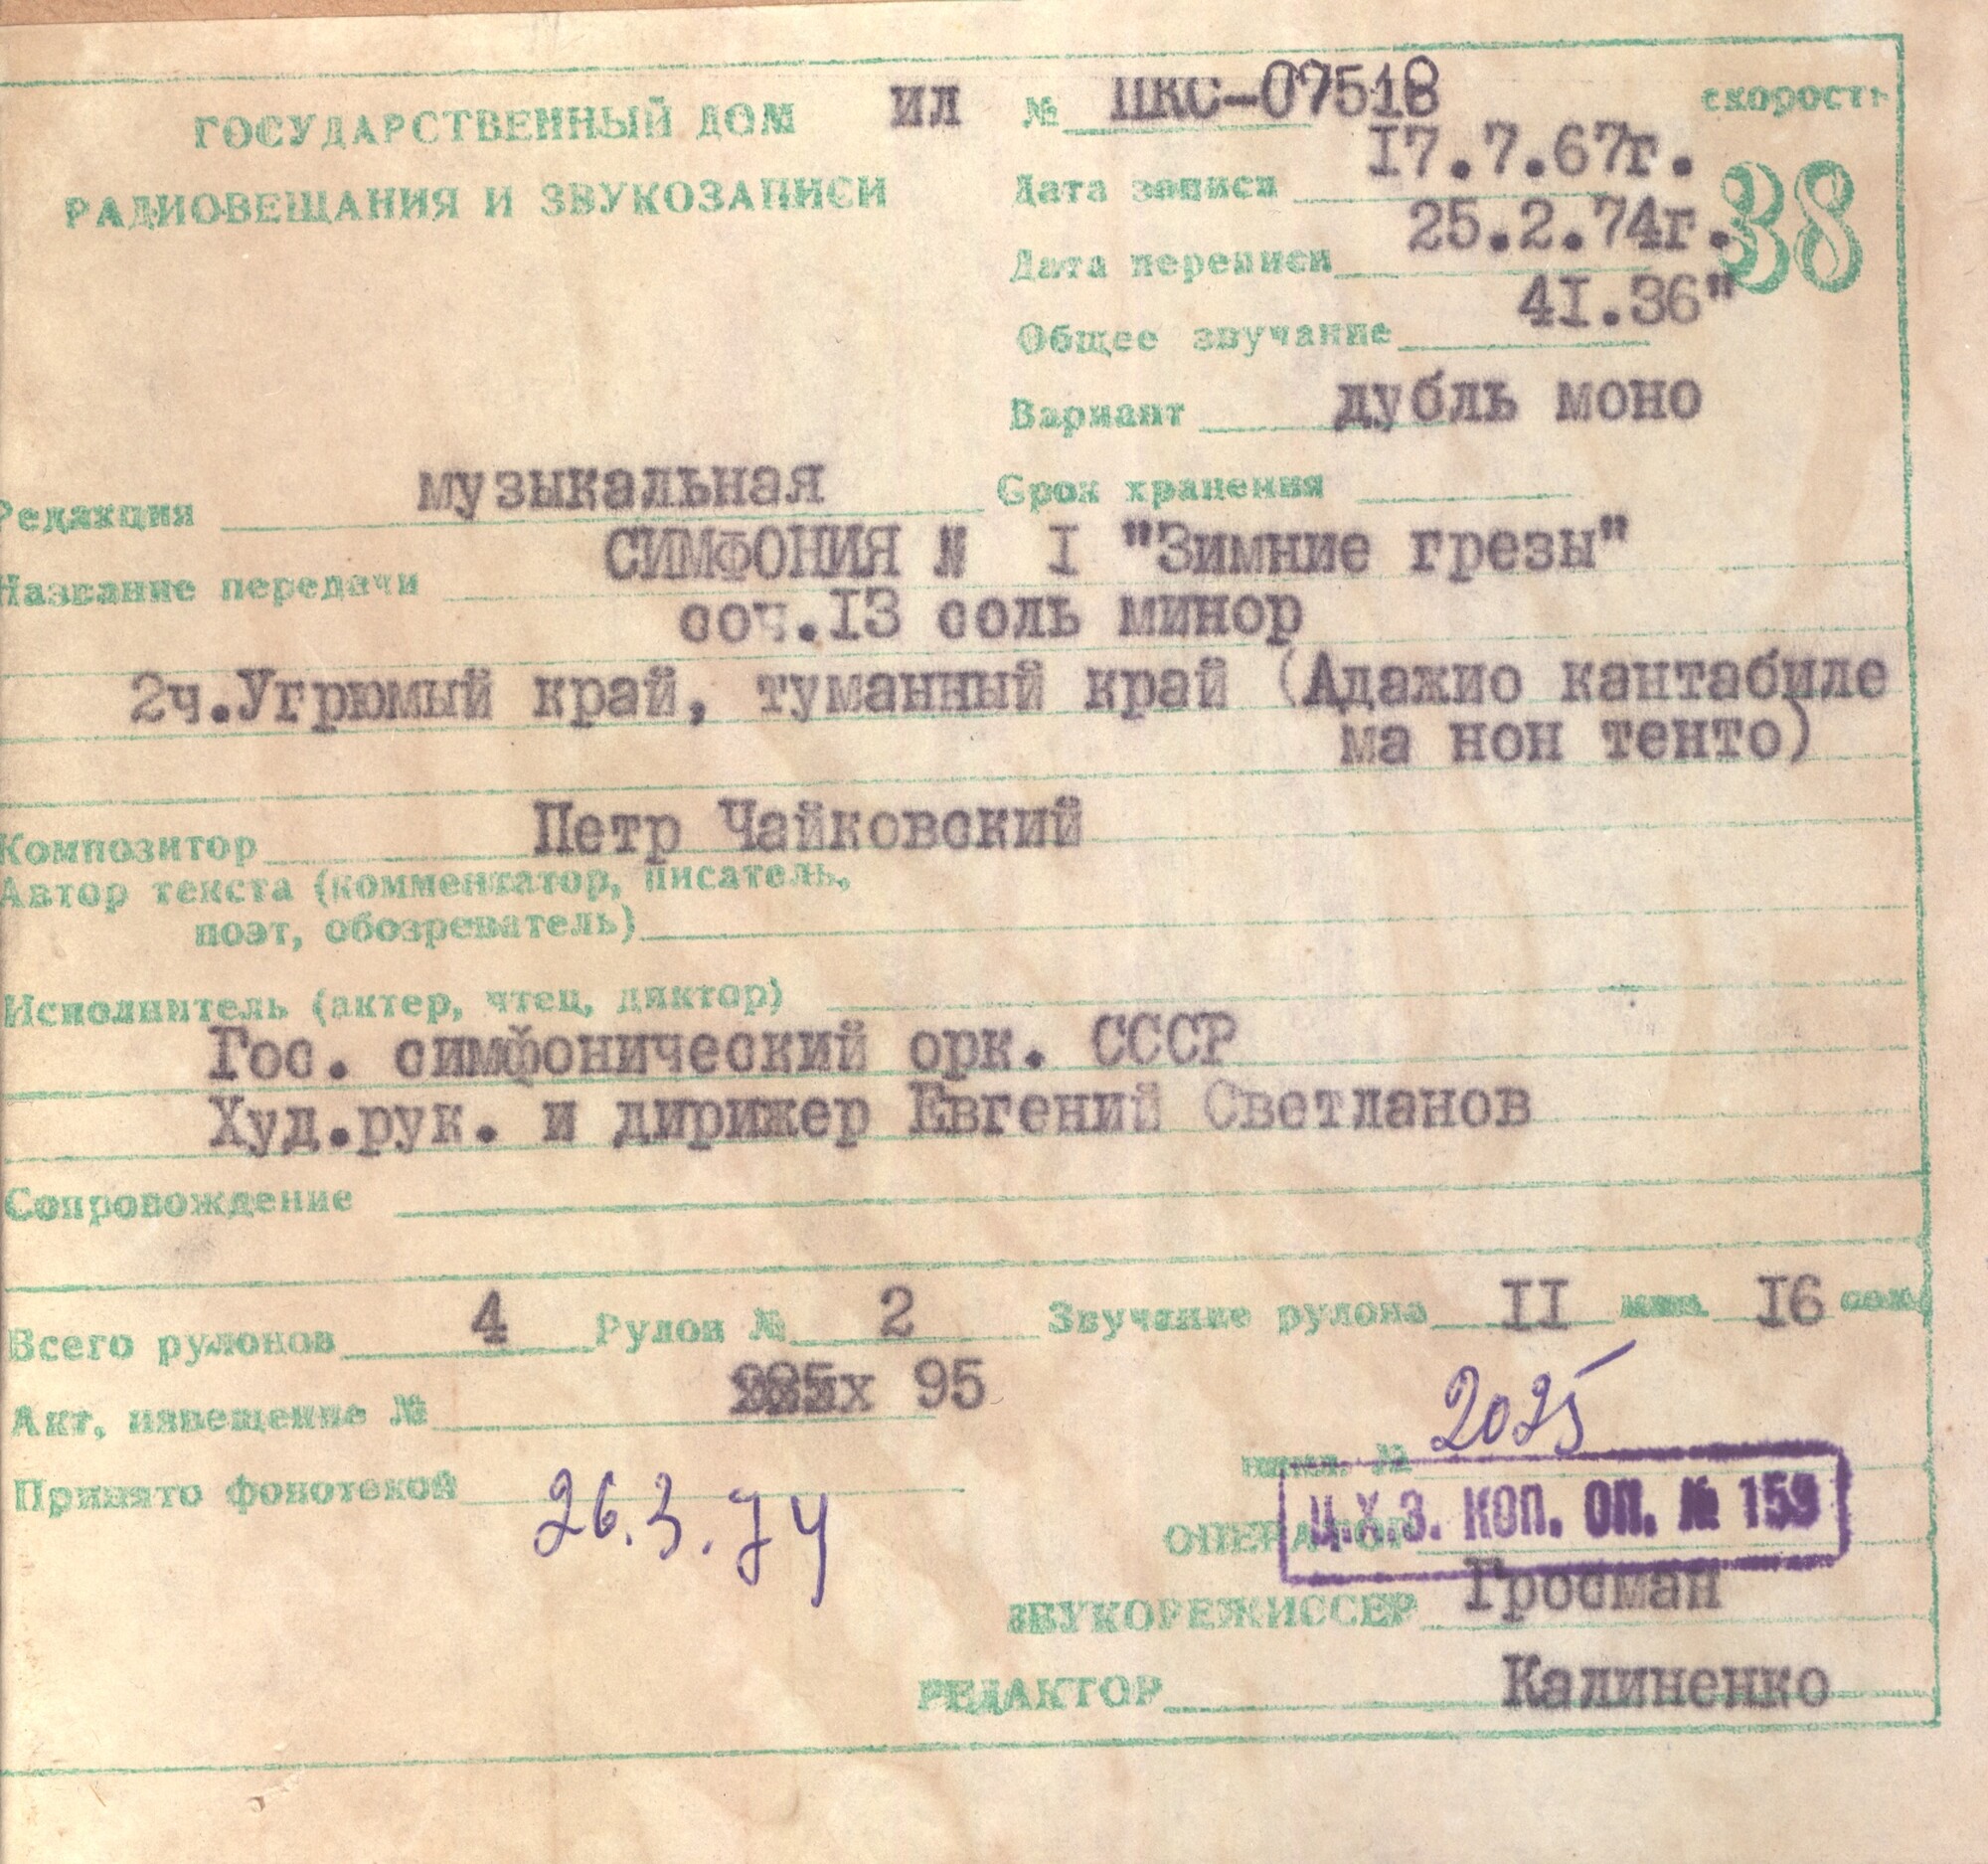 ГОСУДАРСТВЕННЫЙ ДОМ ИЛ № ПКС-07518 скорость
РАДИОВЕЩАНИЯ И ЗВУКОЗАПИСИ Дата записи 17.7.67г. 38
Дата переписи 25.2.74г.
Общее звучание 4I.36"
Вариант дубль моно
Редакция музыкальная Срок хранения
Название передачи СИМФОНИЯ № I "Зимние грезы"
соч.I3 соль минор
2ч.Угрюмый край, туманный край (Адажио кантабиле
ма нон тенто)
Композитор Петр Чайковский
Автор текста (комментатор, писатель,
поэт, обозреватель)
Исполнитель (актер, чтец, диктор)
Гос. симфонический орк. СССР
Худ.рук. и дирижер Евгений Светланов
Сопровождение
Всего рулонов 4 Рулон № 2 Звучание рулона II мин. I6 сек.
Акт, извещение № 95
2025
Принято фонотекой 26.3.74
ОПЕРАТОР Ц.Х.З. КОП. ОП. № 159
ЗВУКОРЕЖИССЕР Гросман
РЕДАКТОР Калиненко